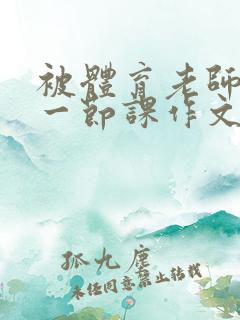 被體育老師
一節課作文
孤九塵
未經同意禁止轉載